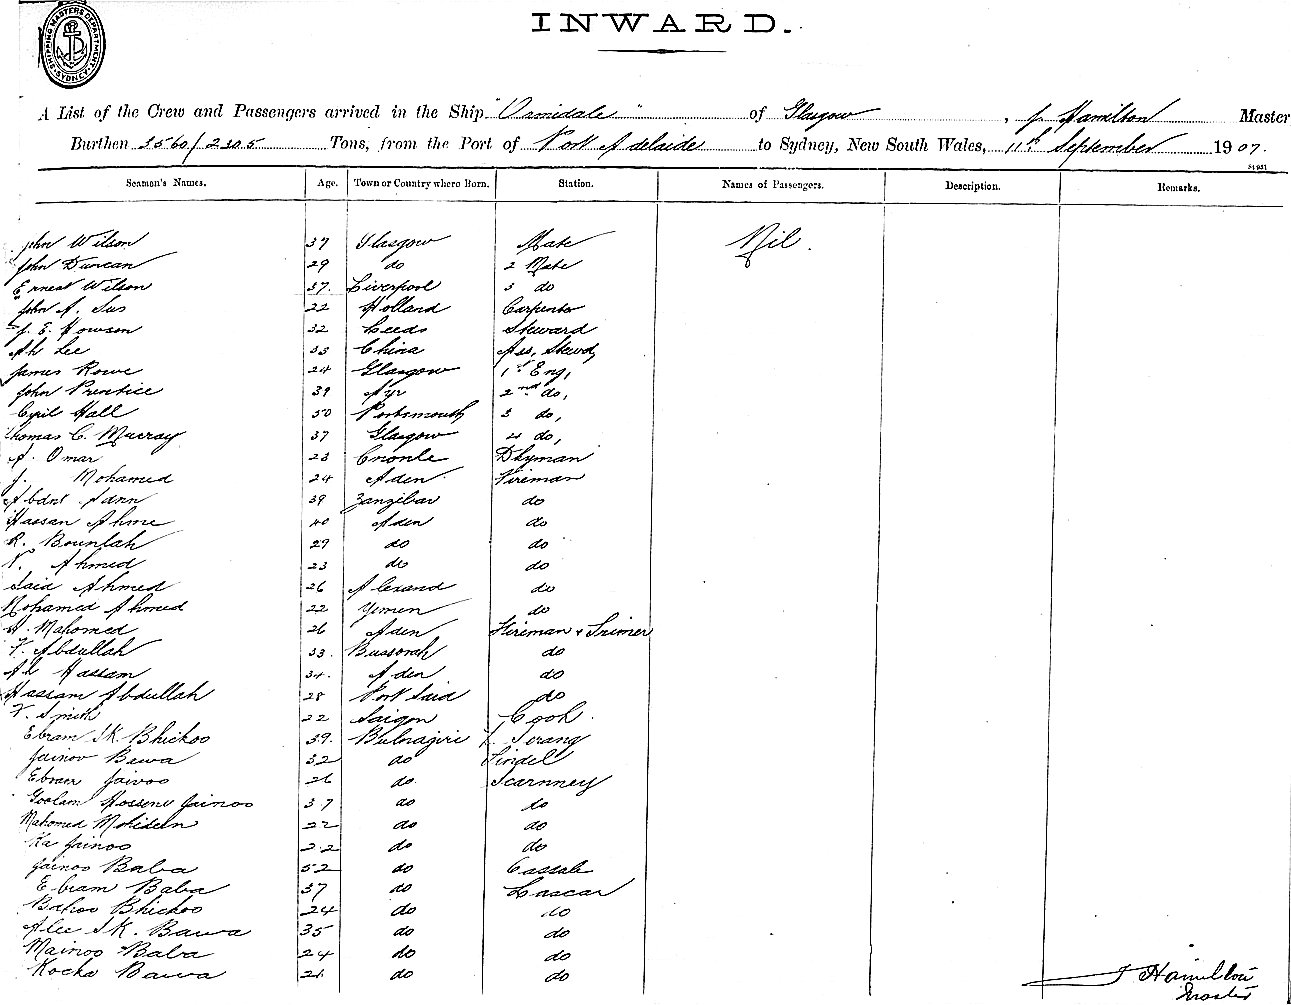 SHIPPING MASTERS DEPARTMENT SYDNEY
INWARD.
A List of the Crew and Passengers arrived in the Ship "Ormidale" of Glasgow, J Hamilton Master
Burthen 3560/2305 Tons, from the Port of Port Adelaide to Sydney, New South Wales, 11th September 1907.
Seamen's Names. Age. Town or Country where Born. Station. Names of Passengers. Description. Remarks.
John Wilson 37 Glasgow Mate Nil.
John Duncan 29 do 2 Mate
Ernest Wilson 37. Liverpool 3 do
John A. Sus 22 Holland Carpenter
J. E. Howson 32 Leeds Steward
Ah Lee 33 China Ass, Stewd,
James Rowe 24 Glasgow 1st Eng,
John Prentice 39 Ayr 2nd do,
Cyril Hall 50 Portsmouth 3 do,
Thomas C. Murray 37 Glasgow 4 do,
A. Omar 23 Dkyman
J. Mohamed 24 Aden Fireman
39 Zanzibar do
Hassan Ahme 40 Aden do
R. Bounlah 29 do do
N. Ahmed 23 do do
Said Ahmed 26 Alexand do
Mohamed Ahmed 22 Yemen do
A. Mahomed 26 Aden Fireman & Trimer
F. Abdullah 33. Bussorah do
Al Hassam 34. Aden do
Hassam Abdullah 28 Port Said do
F. Smith 22 Saigon Cook.
Ebram SK. Bhickoo 39. Serang
Jainoo Bawa 32 do Tindel
Jainoo 26 do
Goolam Hossene Jainoo 37 do do
Mahomed Mohideen 22 do do
Ka Jainoo 22 do do
Jainoo Baba 52 do Cassab
Ebram Baba 37 do Lascar
Bahoo Bhickoo 24 do do
Alee SK. Bawa 35 do do
Mainoo Baba 24 do do
Kocho Bawa 21 do do
J Hamilton
Master